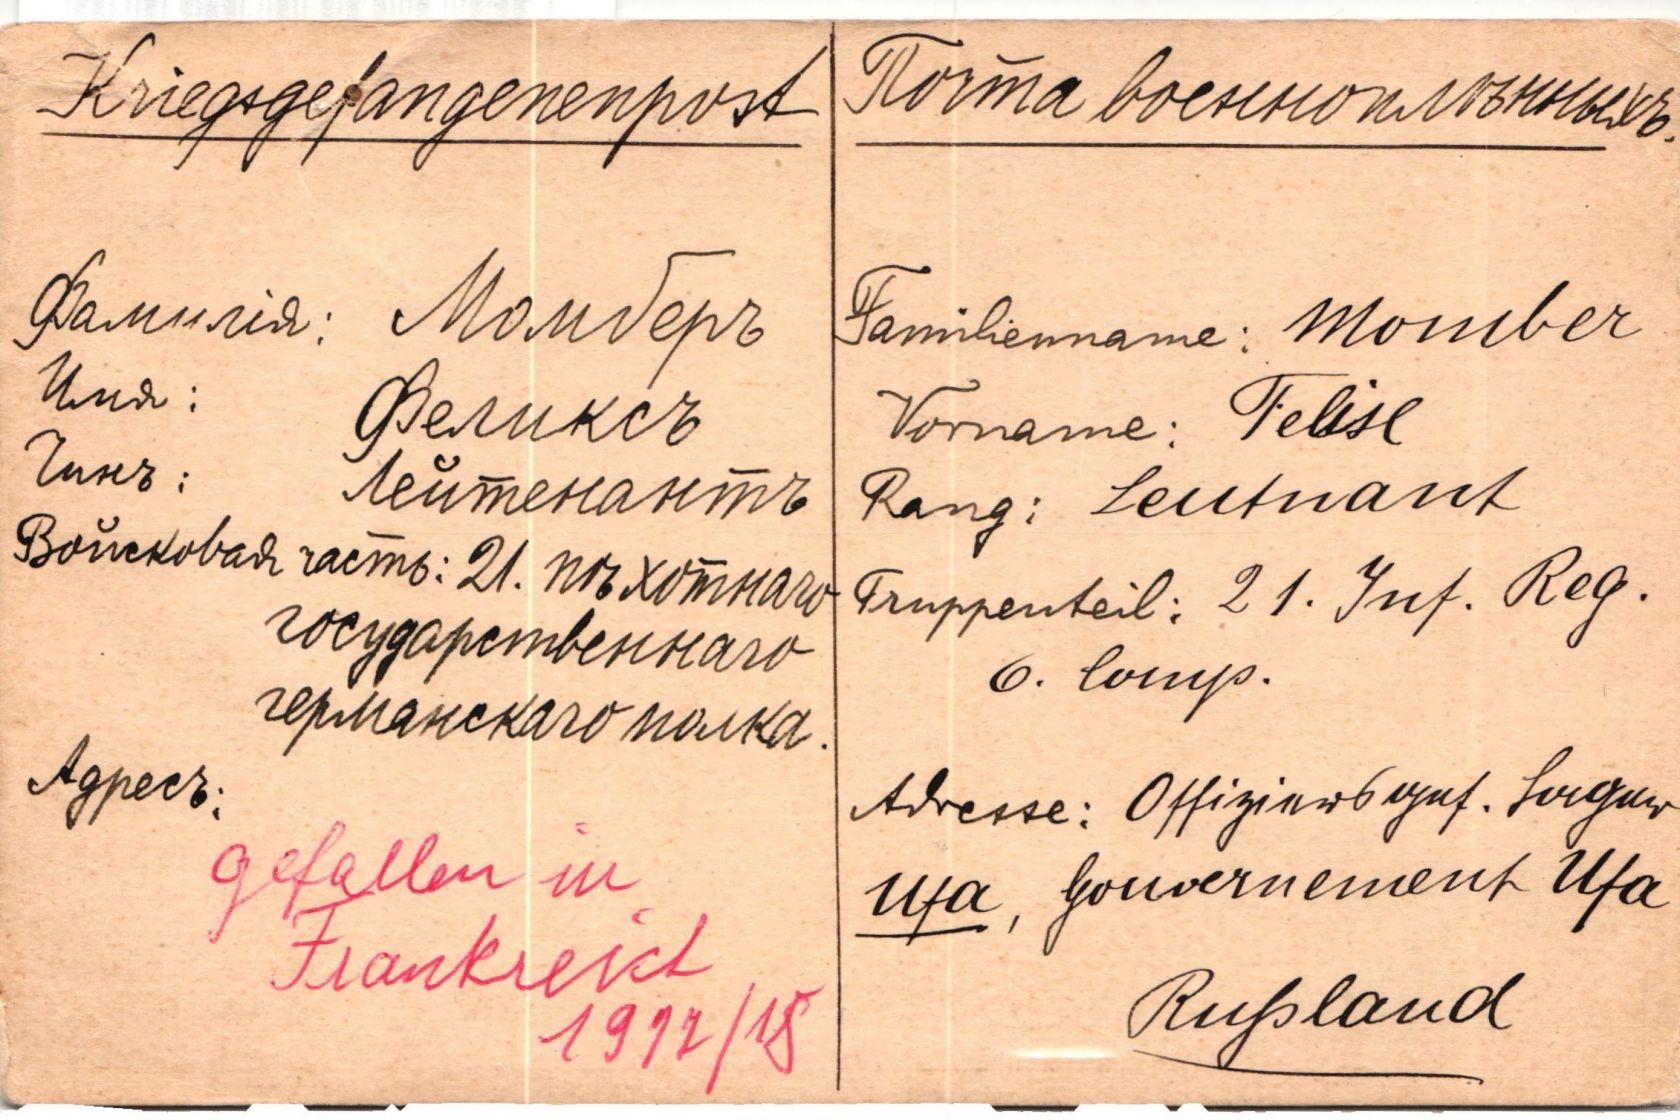 Kriegsgefangenenpost
Фамилія: Момберъ
Имя: Феликсъ
Чинъ: Лейтенантъ
Войсковая часть: 21. пѣхотнаго
государственнаго
германскаго полка.
Адресъ:
gefallen in
Frankreich
1917/18
Почта военноплѣнныхъ.
Familienname: Momber
Vorname: Felix
Rang: Leutnant
Truppenteil: 21. Inf. Reg.
6. Comp.
Adresse: Offiziersgef. Lager
Ufa, Gouvernement Ufa
Rußland